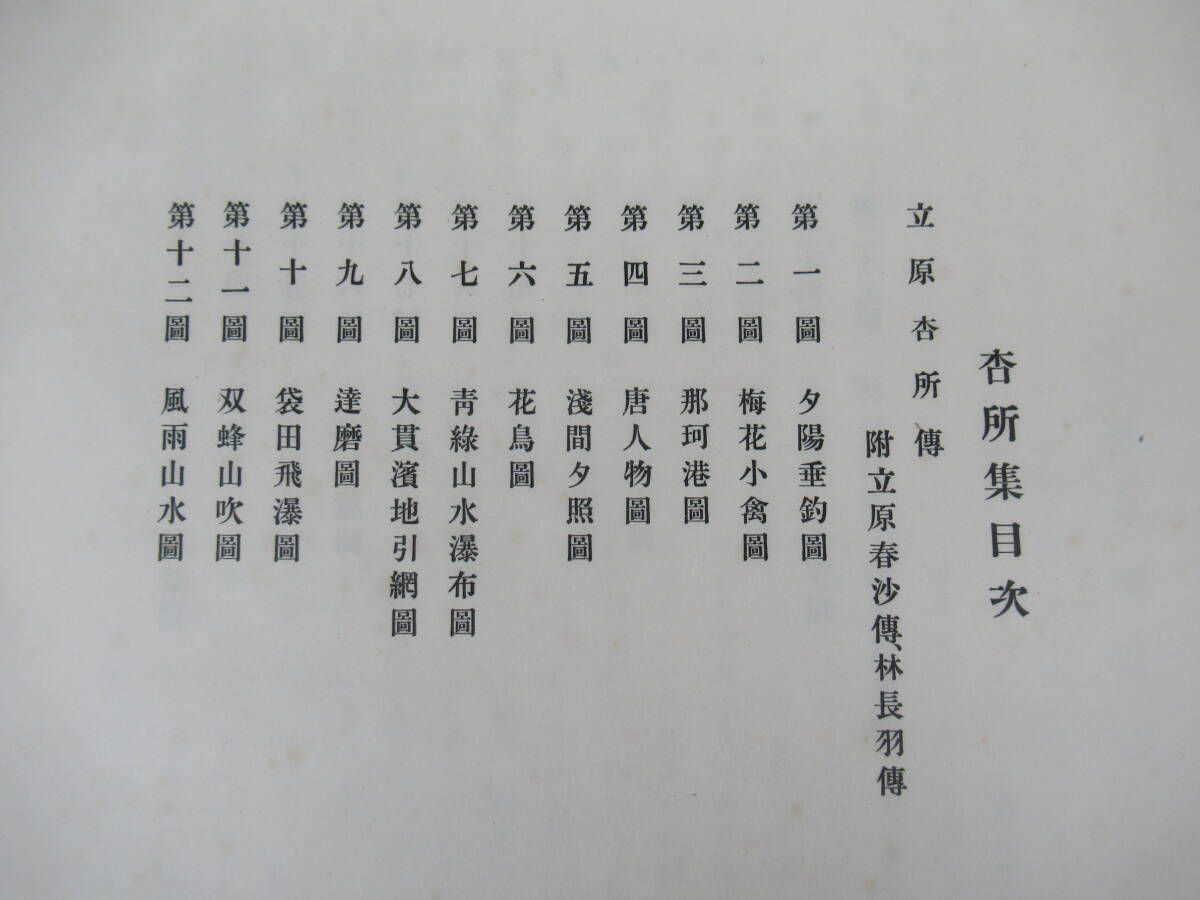 杏所集目次
立原杏所傳
附立原春沙傳、林長羽傳
第一圖 夕陽垂釣圖
第二圖 梅花小禽圖
第三圖 那珂港圖
第四圖 唐人物圖
第五圖 淺間夕照圖
第六圖 花鳥圖
第七圖 靑綠山水瀑布圖
第八圖 大貫濱地引網圖
第九圖 達磨圖
第十圖 袋田飛瀑圖
第十一圖 双蜂山吹圖
第十二圖 風雨山水圖